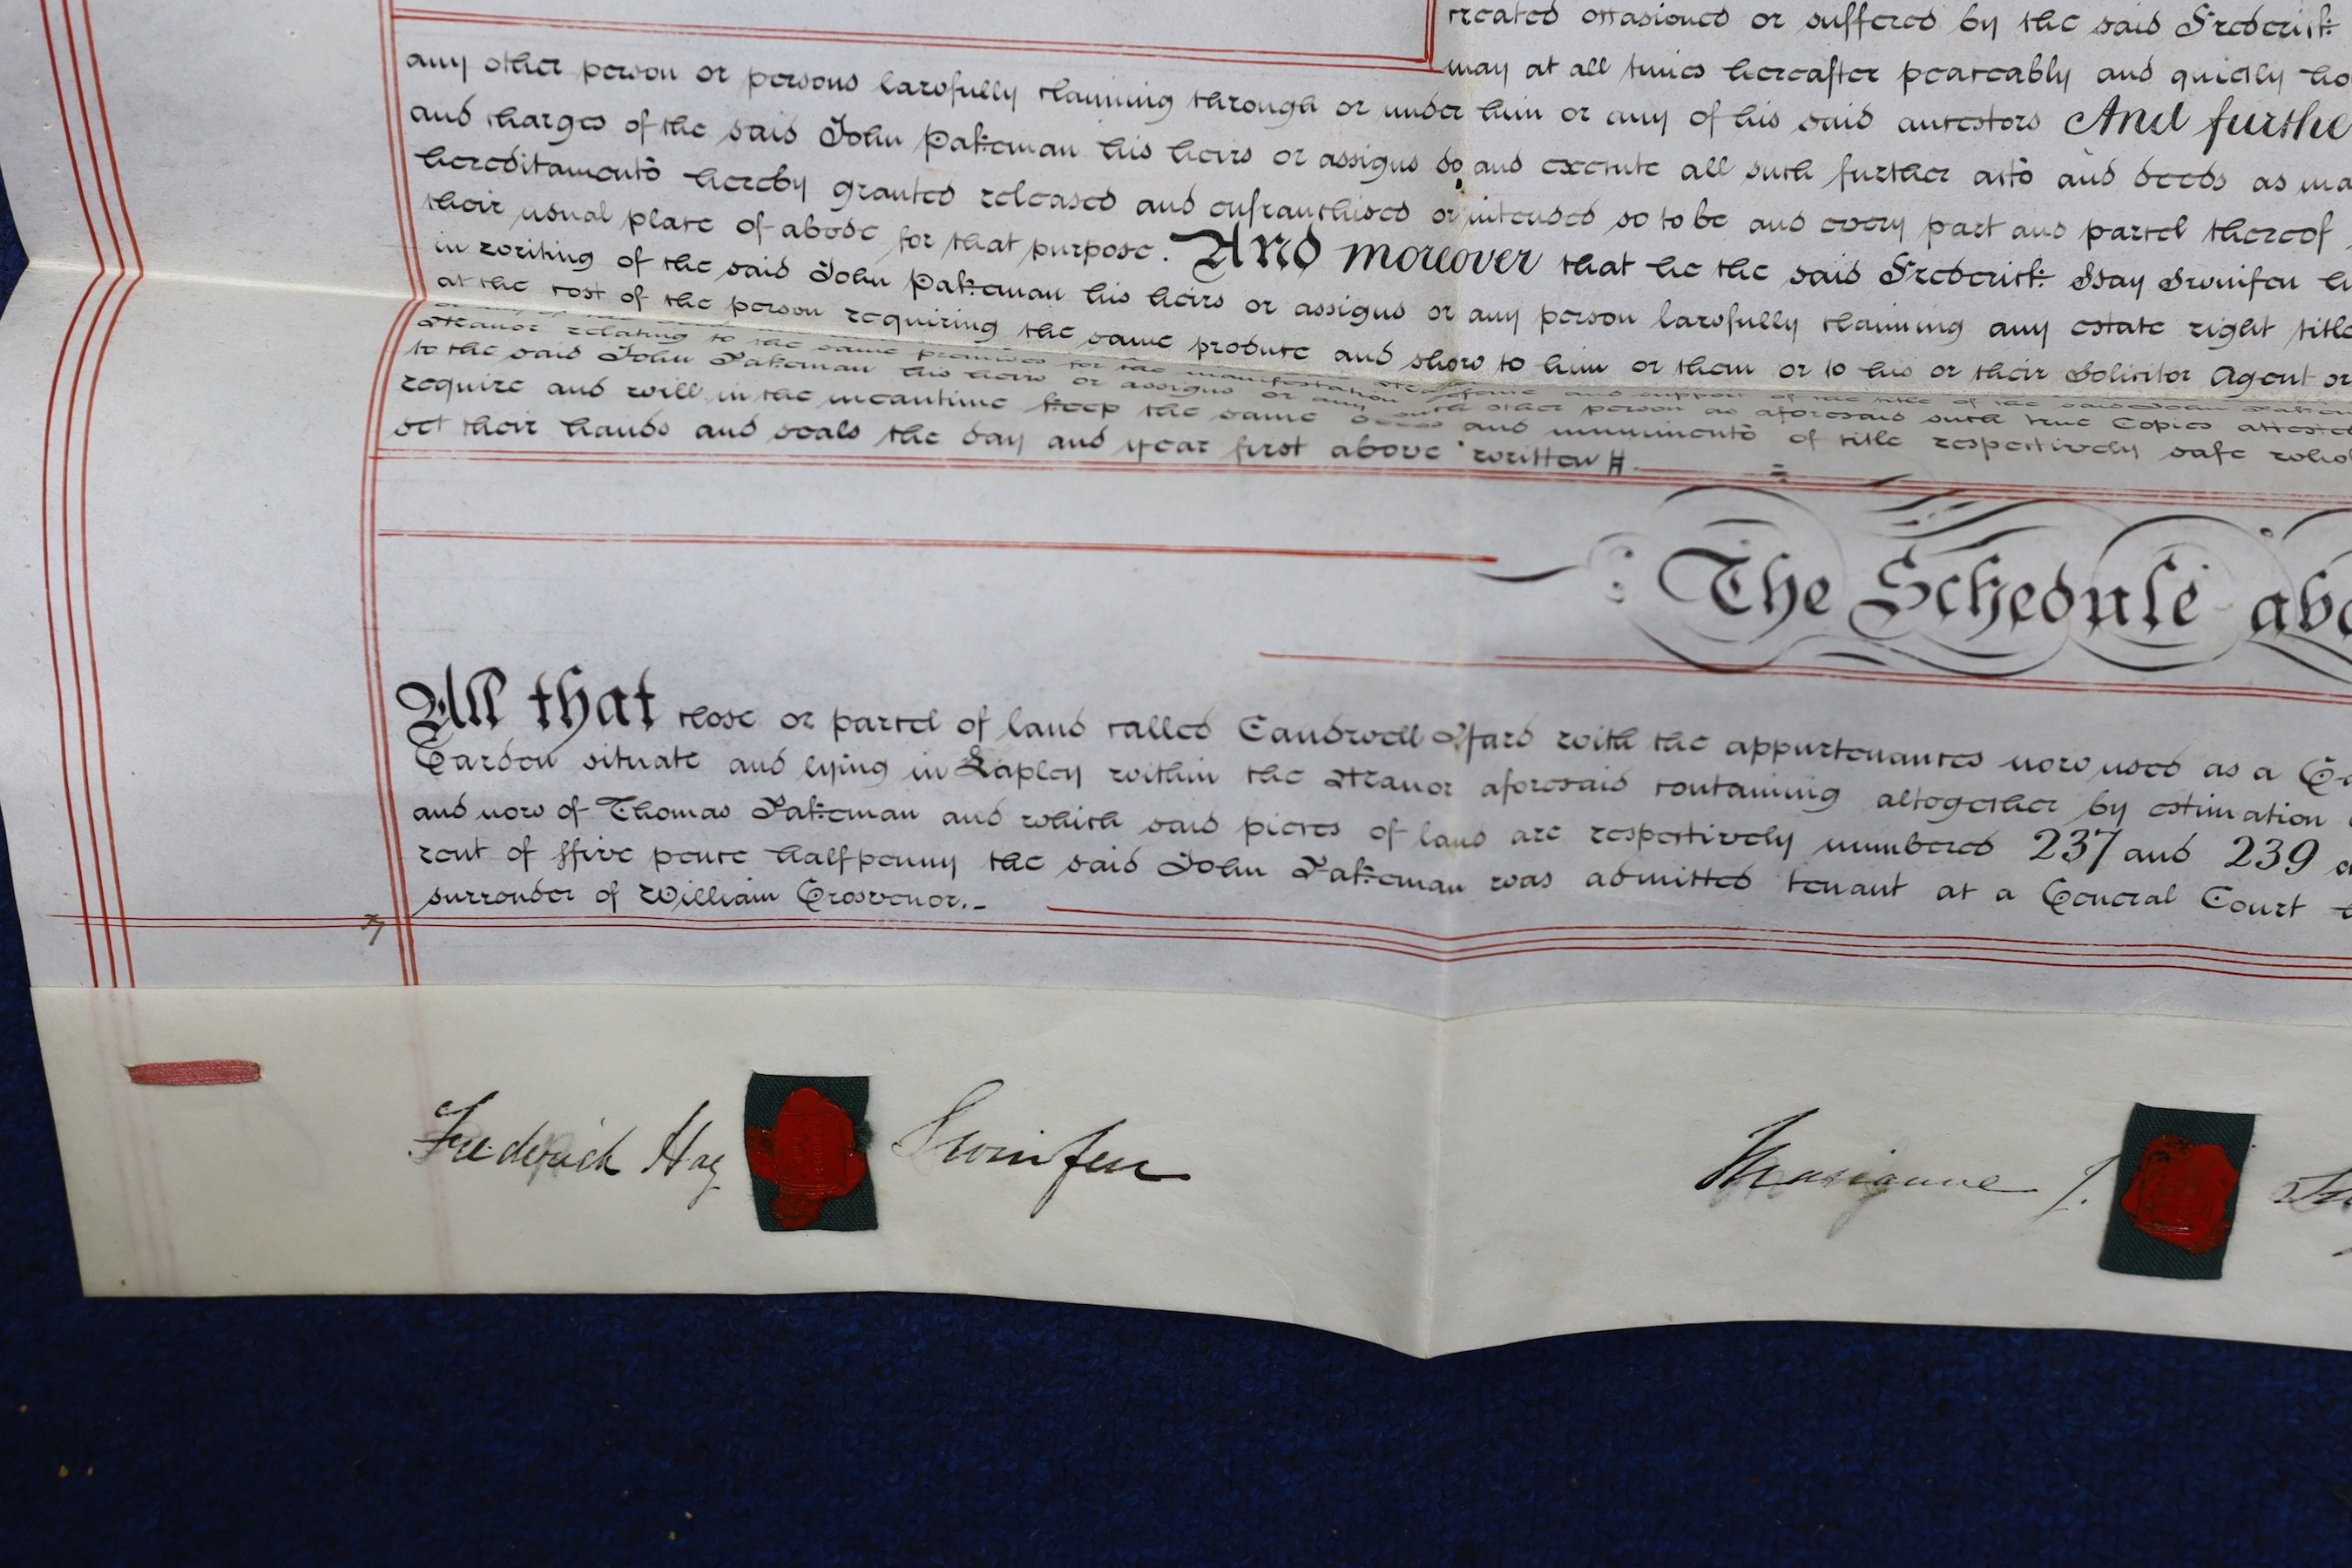 created occasioned or suffered by the said Frederick
may at all times hereafter peaceably and quietly ho
any other person or persons lawfully claiming through or under him or any of his said ancestors And furthe
and charges of the said John Pakeman his heirs or assigns do and execute all such further acts and deeds as ma
hereditaments hereby granted released and enfranchised or intended so to be and every part and parcel thereof
their usual place of abode for that purpose. And moreover that he the said Frederick Hay Swinfen h
in writing of the said John Pakeman his heirs or assigns or any person lawfully claiming any estate right title
at the cost of the person requiring the same produce and show to him or them or to his or their Solicitor Agent or
Manor relating to the same premises for the manifestation defense and support of the title of the said John
to the said John Pakeman his heirs or assigns or any such other person as aforesaid such true Copies attested
require and will in the meantime keep the same deeds and muniments of title respectively safe whol
set their hands and seals the day and year first above written
The Schedule abo
All that close or parcel of land called Caudwell Yard with the appurtenances now used as a G
Garden situate and lying in Lapley within the Manor aforesaid containing altogether by estimation
and now of Thomas Pakeman and which said pieces of land are respectively numbered 237 and 239
rent of ffive pence halfpenny the said John Pakeman was admitted tenant at a General Court
surrender of William Grosvenor.
Frederick Hay Swinfen
Marianne J.